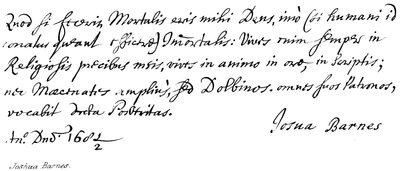 Quod si feceris Mortalis eris mihi Deus, imò (si humani id
conatus queant efficere) Imortalis: Vives enim semper in
Religiosis precibus meis, vives in animo in ore, in scriptis;
nec Mæcenates amplius, sed Dolbinos omnes suos Patronos,
vocabit docta Posteritas.
Josua Barnes
Anº. Dnĩ. 168½
Joshua Barnes.